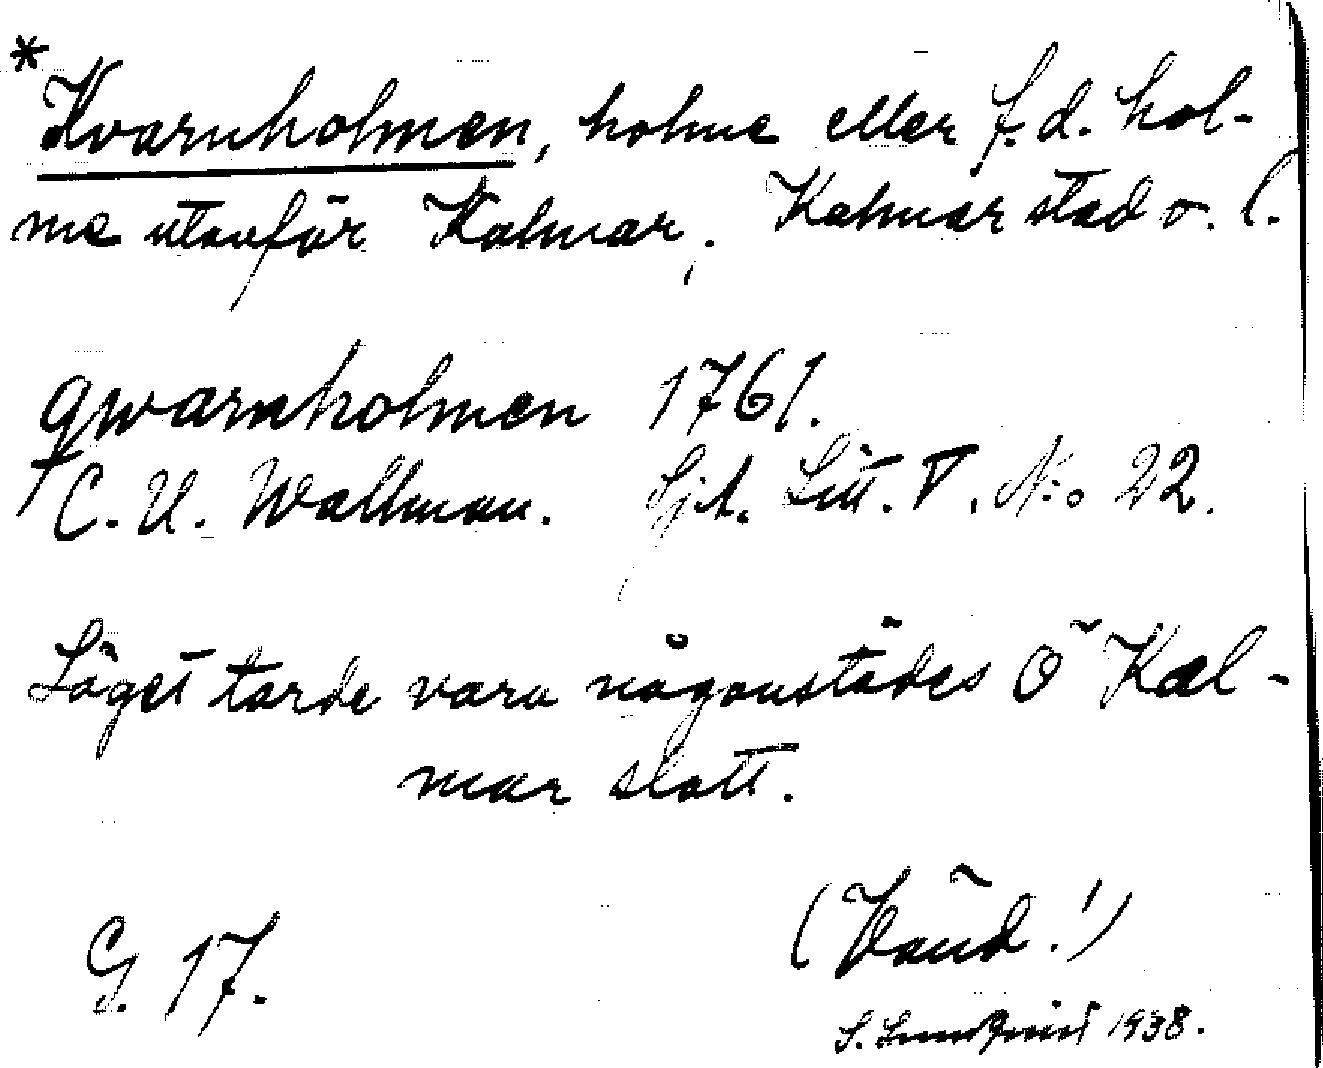 *Kvarnholmen, holme eller f.d. hol-
me utanför Kalmar, Kalmar stad o. l.
Qwarnholmen 1761.
C. U. Wallman. Sjh. Litt. V. No 22.
Läget torde vara någonstädes Ö Kal-
mar slott.
G. 17. (Vänd!)
S. Lundqvist 1938.